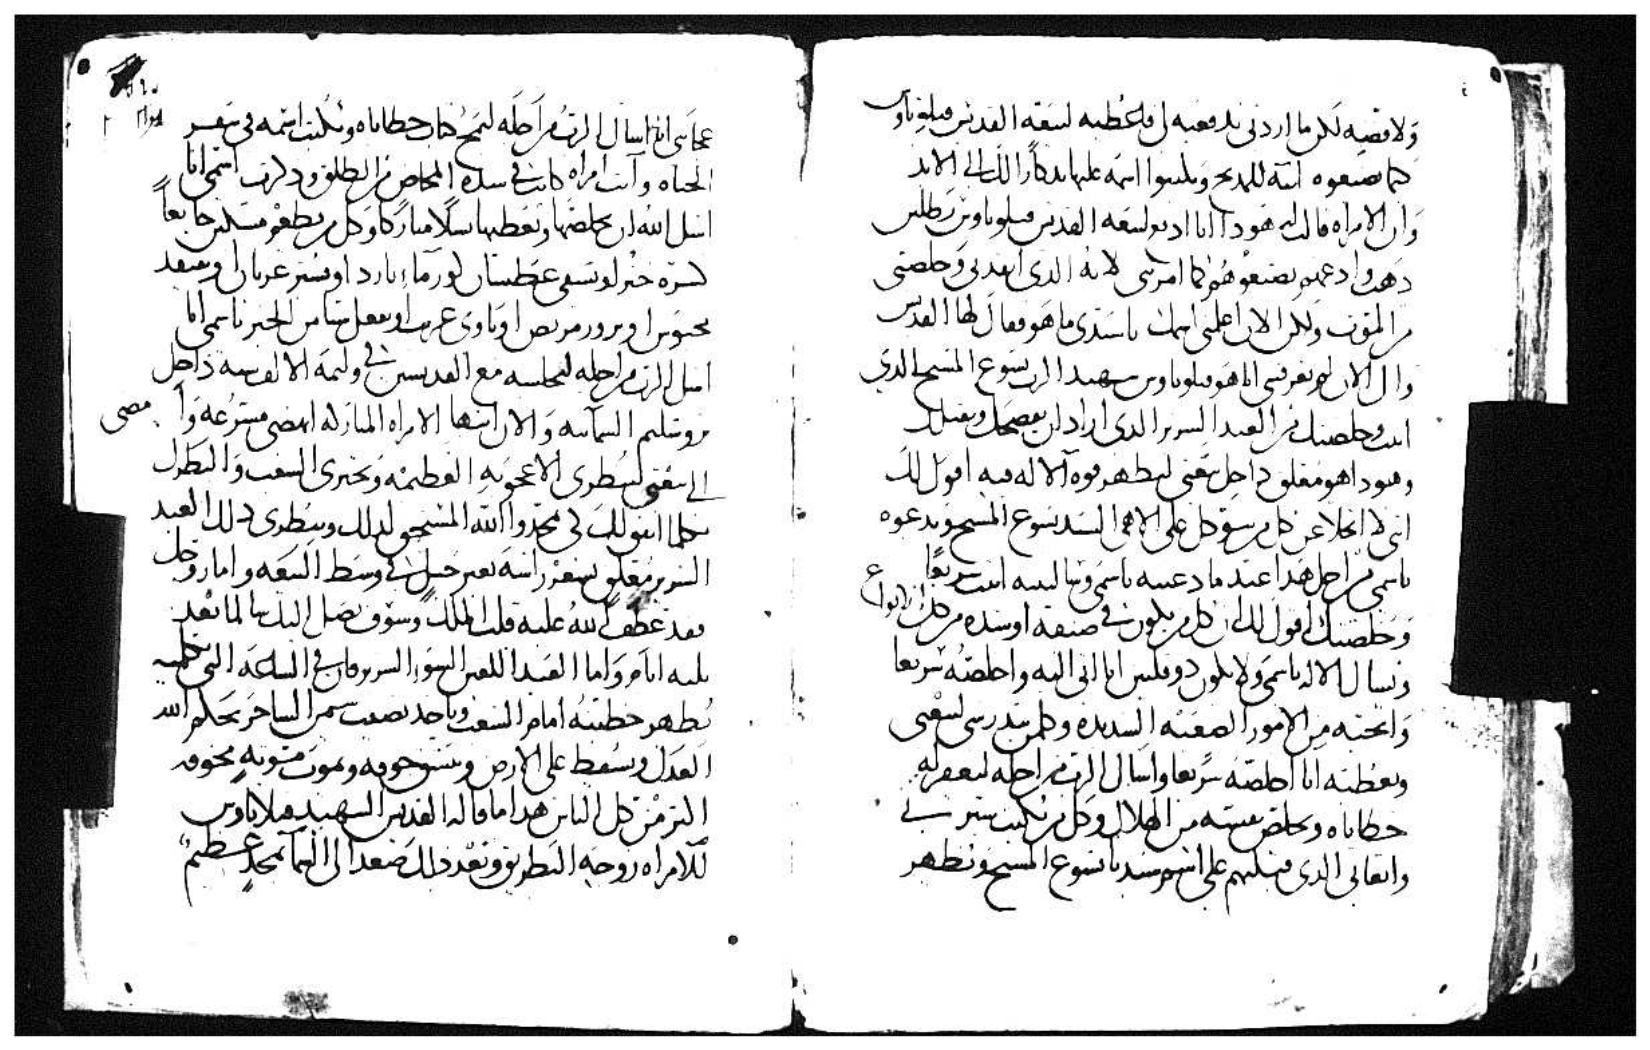 ولا فضه لكن ما اردتى تدفعيه لى فاعطيه لبيعه القديس فيلوباوس
كما يصنعوه انيه للمدبح ويكتبوا اسمه عليها تدكاراً لك الى الابد
وان الامراه قالت له هودا انا ادعو لبيعه القديس فيلوباوس رطلين
دهب وادعهم يصنعوهم كما امرتنى لانه الدى انقدنى وخلصنى
من الموت ولكن الان اعلمنى اسمك ياسيدى ما هو فقال لها القديس
وال الان لم تعرفينى انا هو فيلوباوس شهيد الرب يسوع المسيح الدى
اتيت وخلصتك من العبد الشرير الدى اراد ان يفضحك ويقتلك
وهودا هو مغلق داخل بيعتى ليظهر قوه الاله فيه اقول لك
انى لا اتخلا عن كل من يتوكل على الاهى السيد يسوع المسيح ويدعوه
باسمى من اجل هدا عندما دعيتيه باسمى وسالتيه اتيت سريعاً
وخلصتك اقول لك ان كل من يكون فى ضيقه او شده من كل انواع
ويسال الاله باسمى ولا يكون دو قلبين انا اتى اليه واخلصه سريعا
وانجيه من الامور الصعبه الشديده وكلمن يندر شى لبيعتى
ويعطيه انا اخلصه سريعا واسال الرب من اجله ليغفر له
خطاياه ويخلص نفسه من الهلاك وكل من يكتب سيرتى
واتعابى الدى قبلتهم على اسم سيدنا يسوع المسيح ويظهر
عجايبى انا اسال الرب من اجله ليمحى كتاب خطاياه ويكتب اسمه فى سفر
الحياه واى امراه كانت فى شده المخاض من الطلق ودكرت اسمى انا
اسل الله ان يخلصها ويعطيها نسلا مباركا وكل من يطعم مسكين جايعاً
كسره خبز او يسقى عطشان كوز ماء بارد او يستر عريان او يفتقد
محبوس او يزور مريض او ياوى غريب او يفعل شيا من الخير باسمى انا
اسل الرب من اجله ليجلسه مع القديسين فى وليمه الالف سنه داخل
يروشليم السمآئيه والان ايتها الامراه المباركه امضى مسرعه
الى بيعتى لتنظرى الاعجوبه العظيمه وتخبرى الشعب والبطرك
بكلما اتفق لك لكى يمجدوا الله المستحق لدلك وتنظرى دلك العبد
الشرير معلق بشعر راسه بغير حبل فى وسط البيعه واما زوجك
فقد عطف الله عليه قلب الملك وسوف يصل اليك سالما بعد
ثلثه ايام واما العبد اللعين السو الشرير فان فى الساعه التى
تظهر خطيته امام الشعب
العدل ويسقط على الارض وينشق جوفه ويموت موته مخوفه
اكثر من كل الناس هدا ما قاله القديس الشهيد فيلاباوس
للامراه زوجه البطريق وبعد دلك صعد الى السما بمجد عظيم